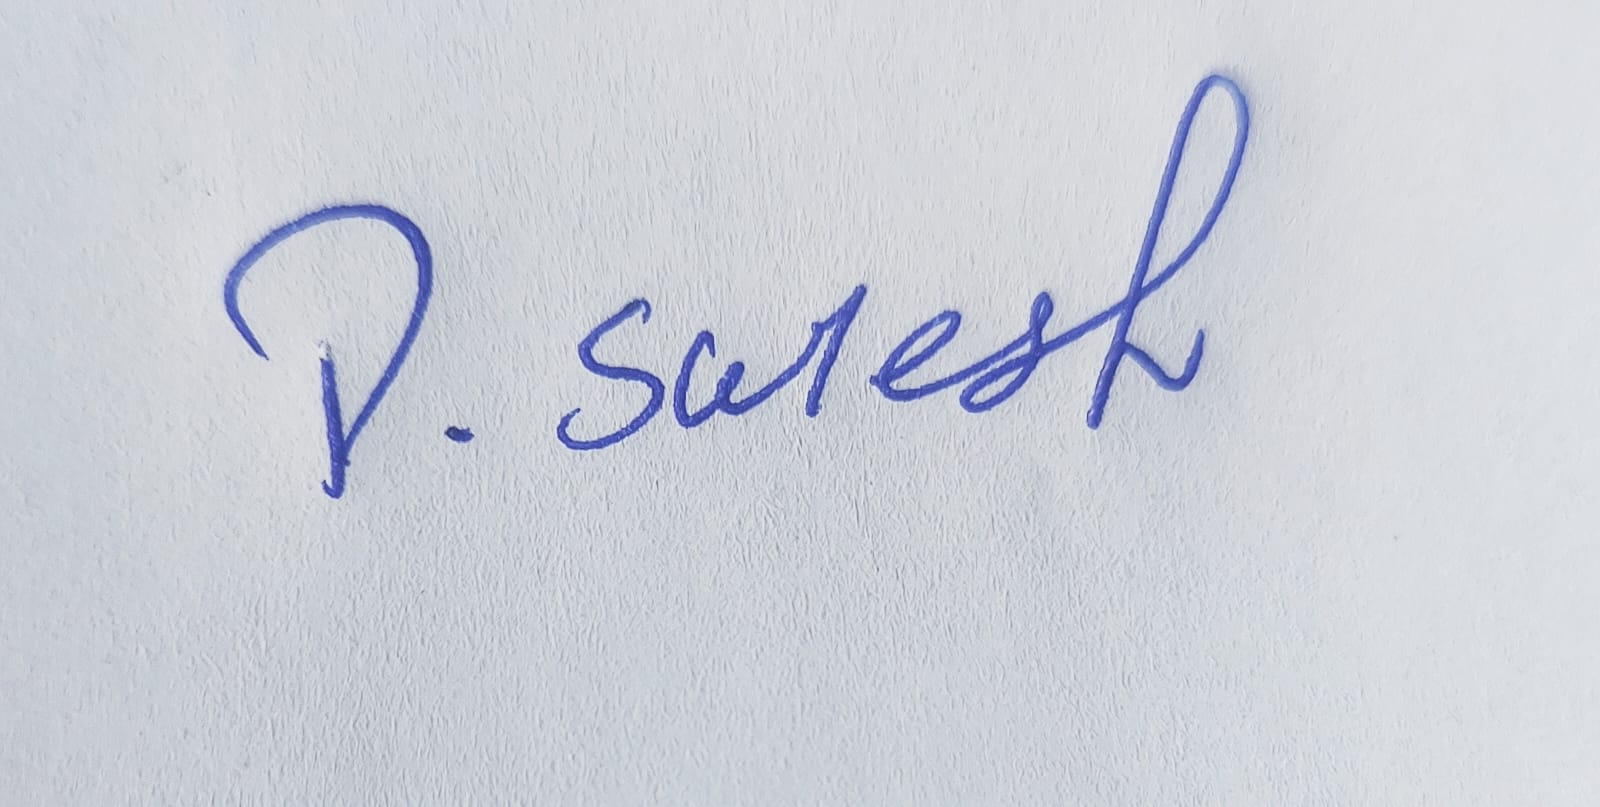 D. Suresh